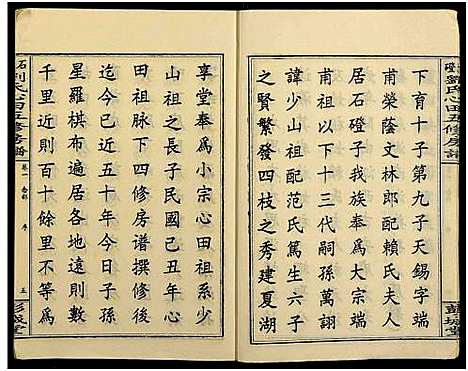 下育十子第九子天錫字端
甫榮蔭文林郎配賴氏夫人
居石磴子我族奉爲大宗端
甫脉下十三代嗣孫萬詡
諱少山祖配范氏篤生六子
之賢繁發四枝之秀建夏湖
享堂奉爲小宗心田祖系少
山祖之子民國己丑年心
田祖脉下四修房譜撰修後
迄今已五十年今日子孫
星羅棋布遍居各地遠則數
千里近則百十餘里不等爲
劉氏心田五修房譜
卷一
序
五
彭城堂
石
劉氏心田五修房譜
彭城堂